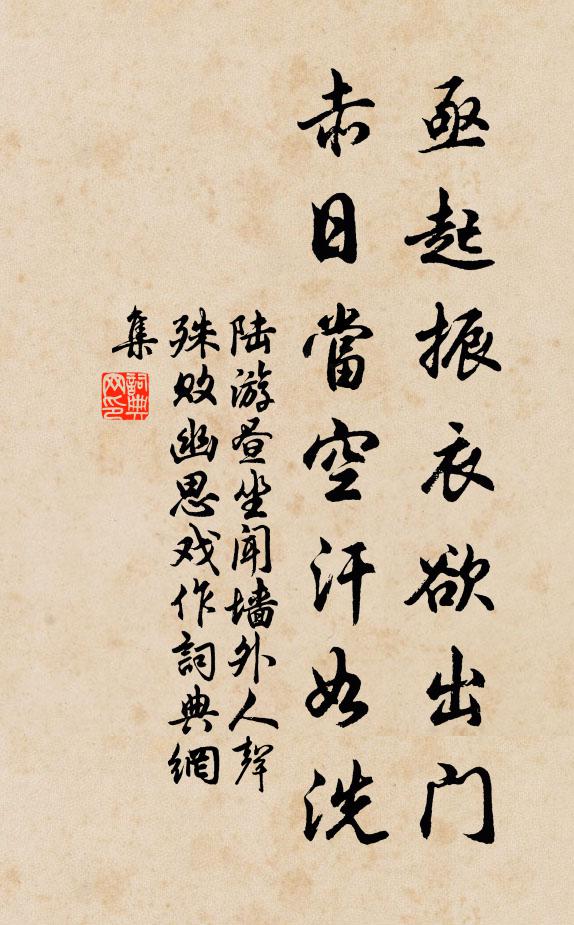 亟起振衣欲出门
赤日當空汗如洗
陆游昼坐闻墙外人聲
殊败幽思戏作詞典網
集
詞典
网印